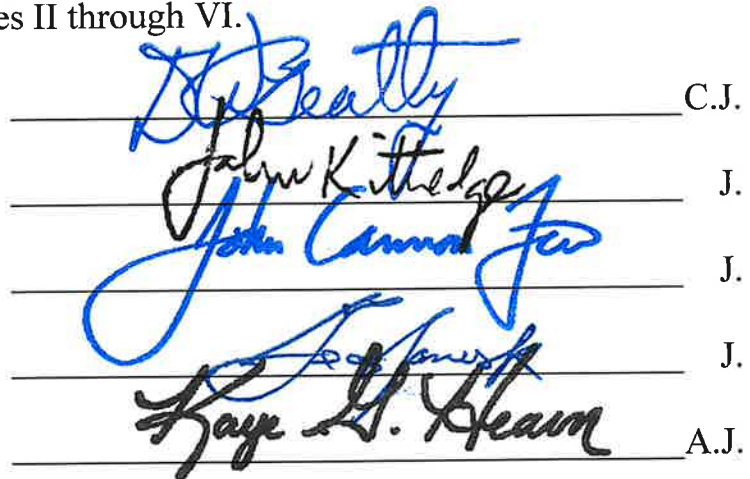 es II through VI.
D W Beatty C.J.
John Kittredge J.
John Cannon Few J.
J.
Kaye G. Hearn A.J.